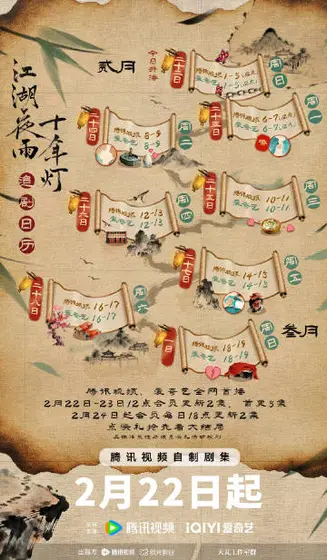 江湖夜雨
十年灯
追剧日历
贰月
今日开播
二十二日
腾讯视频
爱奇艺
1-5
周日
二十三日
腾讯视频
爱奇艺
6-7
周一
二十四日
腾讯视频 8-9
爱奇艺 8-9
周二
二十五日
腾讯视频 10-11
爱奇艺 10-11
周三
二十六日
腾讯视频 12-13
爱奇艺 12-13
周四
二十七日
腾讯视频 14-15
爱奇艺 14-15
周五
二十八日
腾讯视频 16-17
爱奇艺 16-17
周六
叁月
腾讯视频 18-19
爱奇艺 18-19
周日
腾讯视频、爱奇艺全网首播
2月22日-23日12点会员更新2集，首更5集
2月24日起会员每日18点更新2集
点映礼抢先看大结局
腾讯视频自制剧集
2月22日起
腾讯视频 iQIYI爱奇艺
出品方 腾讯视频